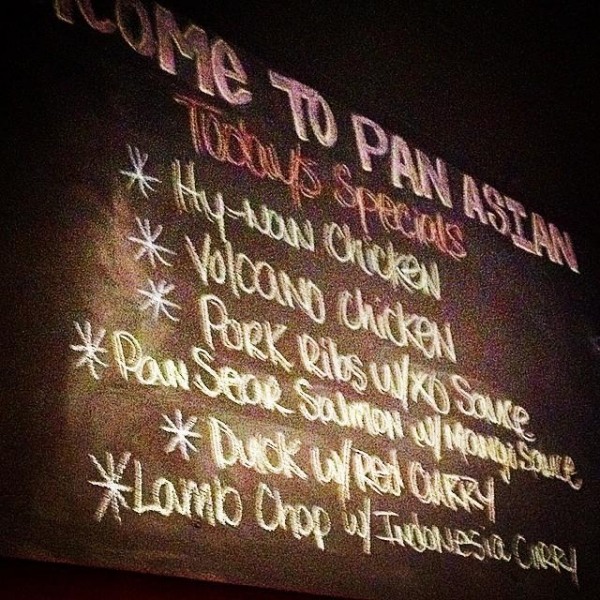 COME TO PAN ASIAN
Today's Specials
* Hy-nan Chicken
* Volcano Chicken
* Pork Ribs w/XO Sauce
* Pan Sear Salmon w/Mango Sauce
* Duck w/Red Curry
* Lamb Chop w/Indonesia Curry